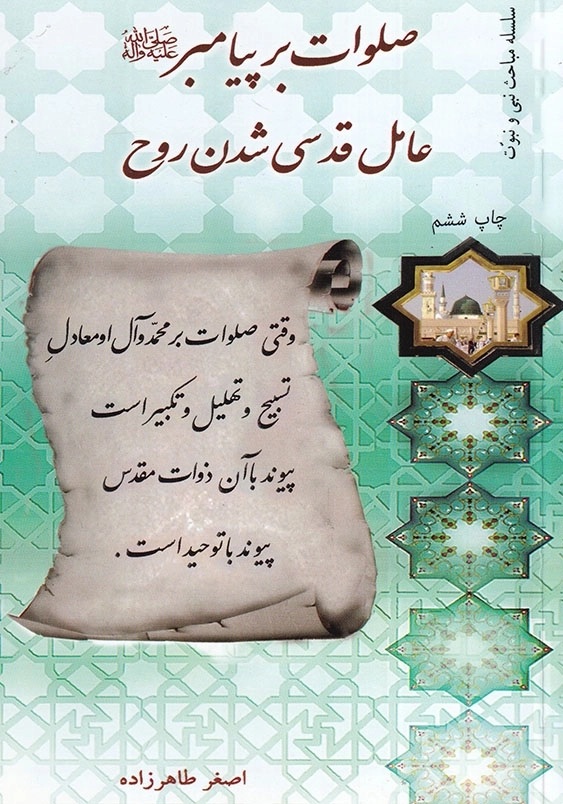 صلوات بر پیامبر صلی الله علیه وآله
عامل قدسی شدن روح
سلسله مباحث نبی و نبوّت
چاپ ششم
وقتی صلوات بر محمّد و آل او معادلِ
تسبیح و تهلیل و تکبیر است
پیوند با آن ذوات مقدس
پیوند با توحید است .
اصغر طاهرزاده